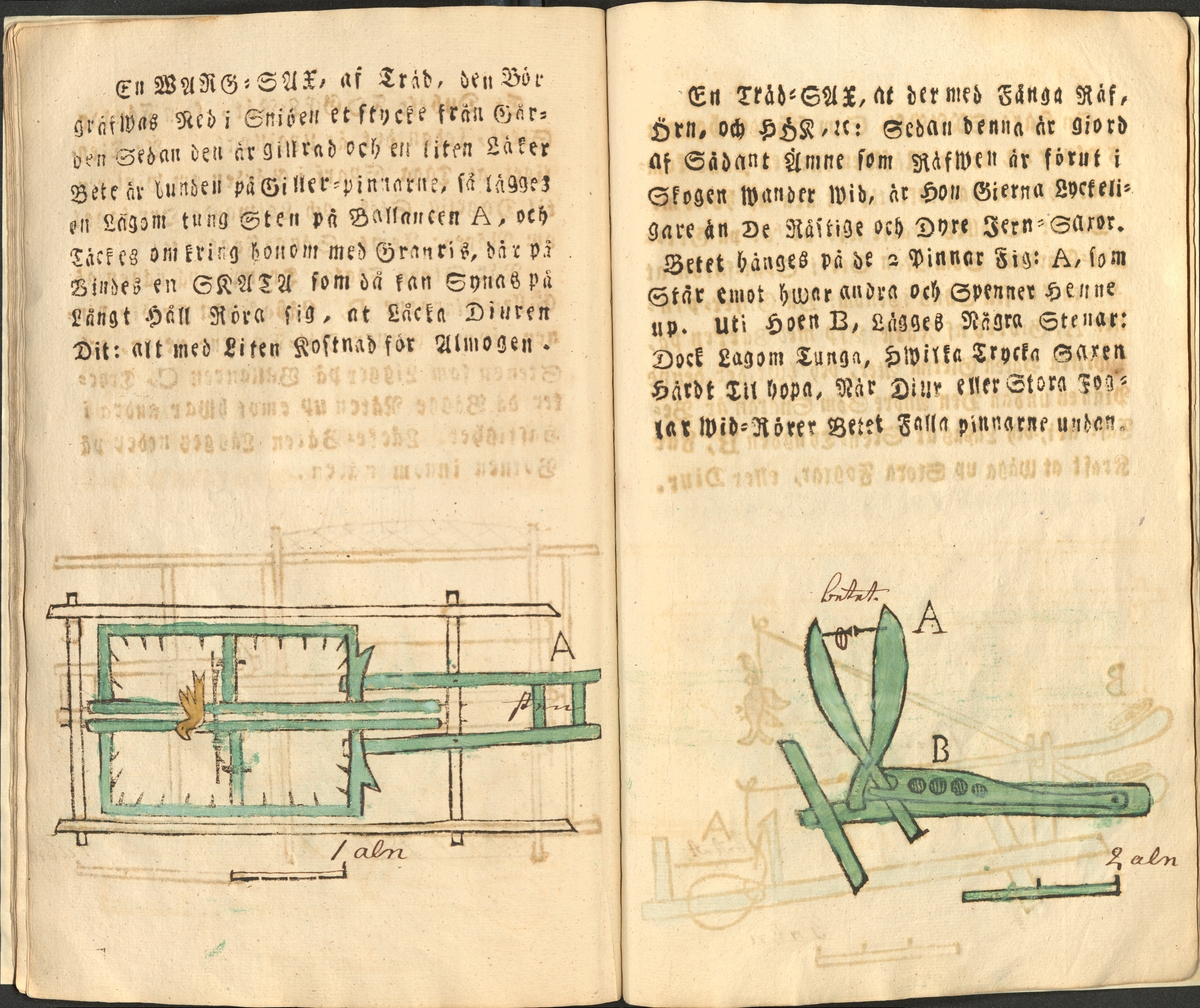 En WARG-SAX, af Träd, den Bör
gräfwas Ned i Sniöen et stycke från Går-
den Sedan den är gillrad och en liten Läker
Bete är bunden på Giller-pinnarne, så lägges
en Lagom tung Sten på Ballancen A, och
Täckes omkring honom med Granris, där på
Bindes en SKATA som då kan Synas på
Långt Håll Röra sig, at Låcka Diuren
Dit: alt med Liten Kostnad för Almogen.
A
sten
1 aln
En Träd-SAX, at der med Fånga Räf,
Örn, och HÖK, &c: Sedan denna är giord
af Sådant Ämne som Räfwen är förut i
Skogen wander wid, är Hon Gierna Lyckeli-
gare än De Råstige och Dyre Jern-Saxor.
Betet hänges på de 2 Pinnar Fig: A, som
Står emot hwar andra och Spenner Henne
up. Uti Hoen B, Lägges Några Stenar:
Dock Lagom Tunga, Hwilka Trycka Saxen
Hårdt Til hopa, När Diur eller Stora Fog-
lar Wid-Rörer Betet Falla pinnarne undan.
betet.
A
B
2 aln